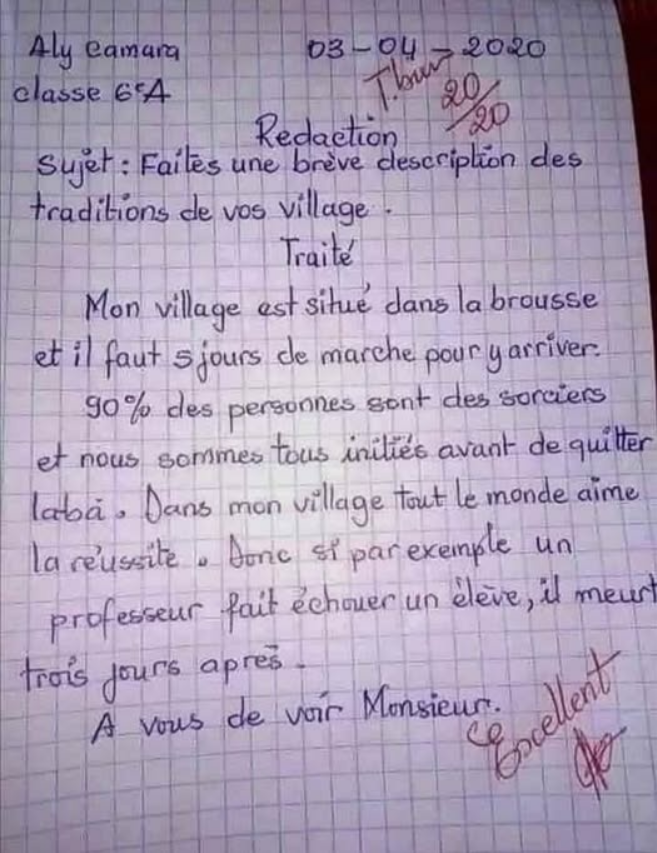 Aly Camara 03-04-2020
classe 6eA T.bien 20/20
Redaction
Sujet : Faites une brève description des
traditions de vos village.
Traité
Mon village est situé dans la brousse
et il faut 5 jours de marche pour y arriver.
90% des personnes sont des sorciers
et nous sommes tous initiés avant de quitter
laba. Dans mon village tout le monde aime
la réussite. Donc si par exemple un
professeur fait échouer un élève, il meurt
trois jours après.
A vous de voir Monsieur.
Excellent